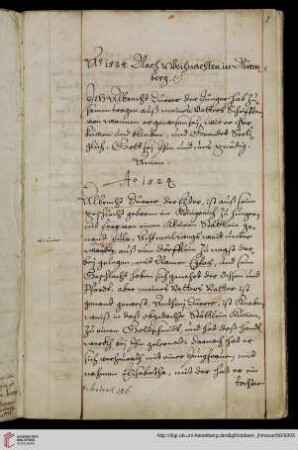 Aº 1524 Nach Weihnachten in Nürm
berg.
Ich Albrecht Dürrer der Jünger hab zu
samen tragen auß meines Vatters Schrifften
von wannen er gewesen sey, wie er her
kummen und blieben, und geendet Seelig
glich. Gott sey ihm und uns gnädig.
Amen.
Aº 1524
Albrecht Dürrer der Elter, ist auß seim
Geschlecht geboren im Königreich zu Hungern,
nit fern von einer kleinen Stättlein ge
nant Jula, acht meil wegs weit unter
Wardein, auß ein Dörfflein zu negst dar
bey gelegen, mit Namen Eytas, und sein
Geschlecht haben sich genehrt der Ochsen und
Pferdt. aber meines Vatters Vatter ist
genant gewest, Anthoni Dürrer, ist Knaben
weiß in daß obgedachte Stättlein kummen,
zu einen Goldschmidt, und hat daß handt
werck bey ihm gelernet, darnach hat er
sich verheurath mit einer Jungfrauen, mit
nahmen Elisabetha, mit der hatt er ein
tochter
http://digi.ub.uni-heidelberg.de/diglit/